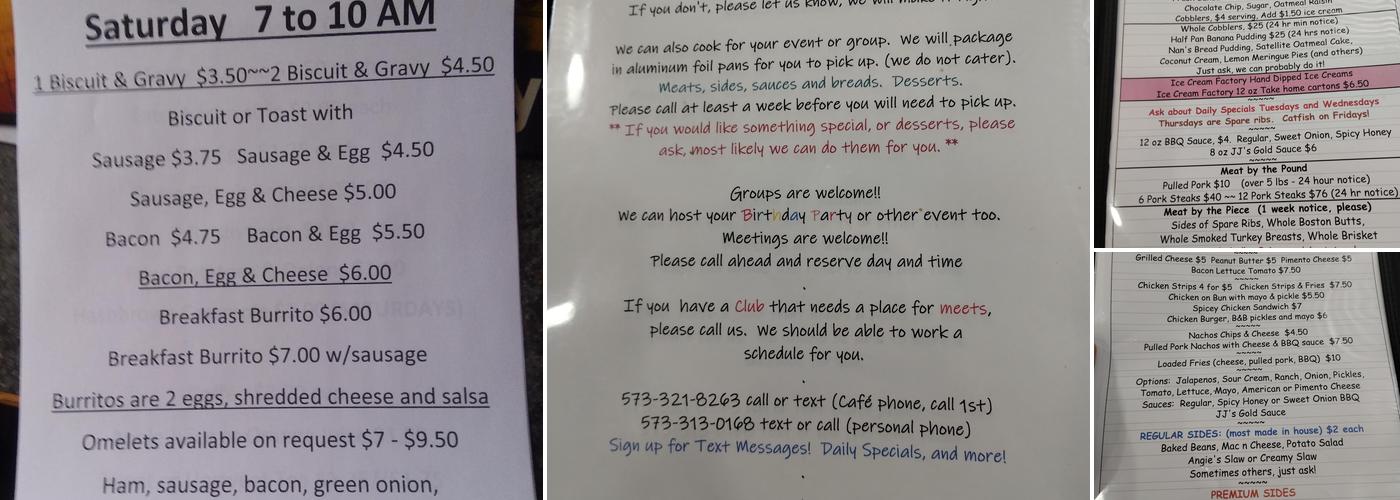 Saturday 7 to 10 AM
1 Biscuit & Gravy $3.50~~2 Biscuit & Gravy $4.50
Biscuit or Toast with
Sausage $3.75 Sausage & Egg $4.50
Sausage, Egg & Cheese $5.00
Bacon $4.75 Bacon & Egg $5.50
Bacon, Egg & Cheese $6.00
Breakfast Burrito $6.00
Breakfast Burrito $7.00 w/sausage
Burritos are 2 eggs, shredded cheese and salsa
Omelets available on request $7 - $9.50
Ham, sausage, bacon, green onion,
If you don't, please let us know, we will make it
We can also cook for your event or group. We will package
in aluminum foil pans for you to pick up. (we do not cater).
Meats, sides, sauces and breads. Desserts.
Please call at least a week before you will need to pick up.
** If you would like something special, or desserts, please
ask, most likely we can do them for you. **
Groups are welcome!!
We can host your Birthday Party or other event too.
Meetings are welcome!!
Please call ahead and reserve day and time
If you have a Club that needs a place for meets,
please call us. We should be able to work a
schedule for you.
573-321-8263 call or text (Café phone, call 1st)
573-313-0168 text or call (personal phone)
Sign up for Text Messages! Daily Specials, and more!
Chocolate Chip, Sugar, Oatmeal Raisin
Cobblers, $4 serving, Add $1.50 ice cream
Whole Cobblers, $25 (24 hr min notice)
Half Pan Banana Pudding $25 (24 hrs notice)
Nan's Bread Pudding, Satellite Oatmeal Cake,
Coconut Cream, Lemon Meringue Pies (and others)
Just ask, we can probably do it!
Ice Cream Factory Hand Dipped Ice Creams
Ice Cream Factory 12 oz Take home cartons $6.50
~~~~~
Ask about Daily Specials Tuesdays and Wednesdays
Thursdays are Spare ribs. Catfish on Fridays!
~~~~~
12 oz BBQ Sauce, $4. Regular, Sweet Onion, Spicy Honey
8 oz JJ's Gold Sauce $6
~~~~~
Meat by the Pound
Pulled Pork $10 (over 5 lbs - 24 hour notice)
6 Pork Steaks $40 ~~ 12 Pork Steaks $76 (24 hr notice)
Meat by the Piece (1 week notice, please)
Sides of Spare Ribs, Whole Boston Butts,
Whole Smoked Turkey Breasts, Whole Brisket
Grilled Cheese $5 Peanut Butter $5 Pimento Cheese $5
Bacon Lettuce Tomato $7.50
~~~~~
Chicken Strips 4 for $5 Chicken Strips & Fries $7.50
Chicken on Bun with mayo & pickle $5.50
Spicey Chicken Sandwich $7
Chicken Burger, B&B pickles and mayo $6
~~~~~
Nachos Chips & Cheese $4.50
Pulled Pork Nachos with Cheese & BBQ sauce $7.50
~~~~~
Loaded Fries (cheese, pulled pork, BBQ) $10
~~~~~
Options: Jalapenos, Sour Cream, Ranch, Onion, Pickles,
Tomato, Lettuce, Mayo, American or Pimento Cheese
Sauces: Regular, Spicy Honey or Sweet Onion BBQ
JJ's Gold Sauce
~~~~~
REGULAR SIDES: (most made in house) $2 each
Baked Beans, Mac n Cheese, Potato Salad
Angie's Slaw or Creamy Slaw
Sometimes others, just ask!
~~~~~
PREMIUM SIDES